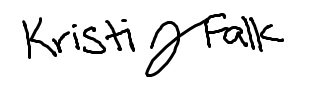 Kristi J Falk